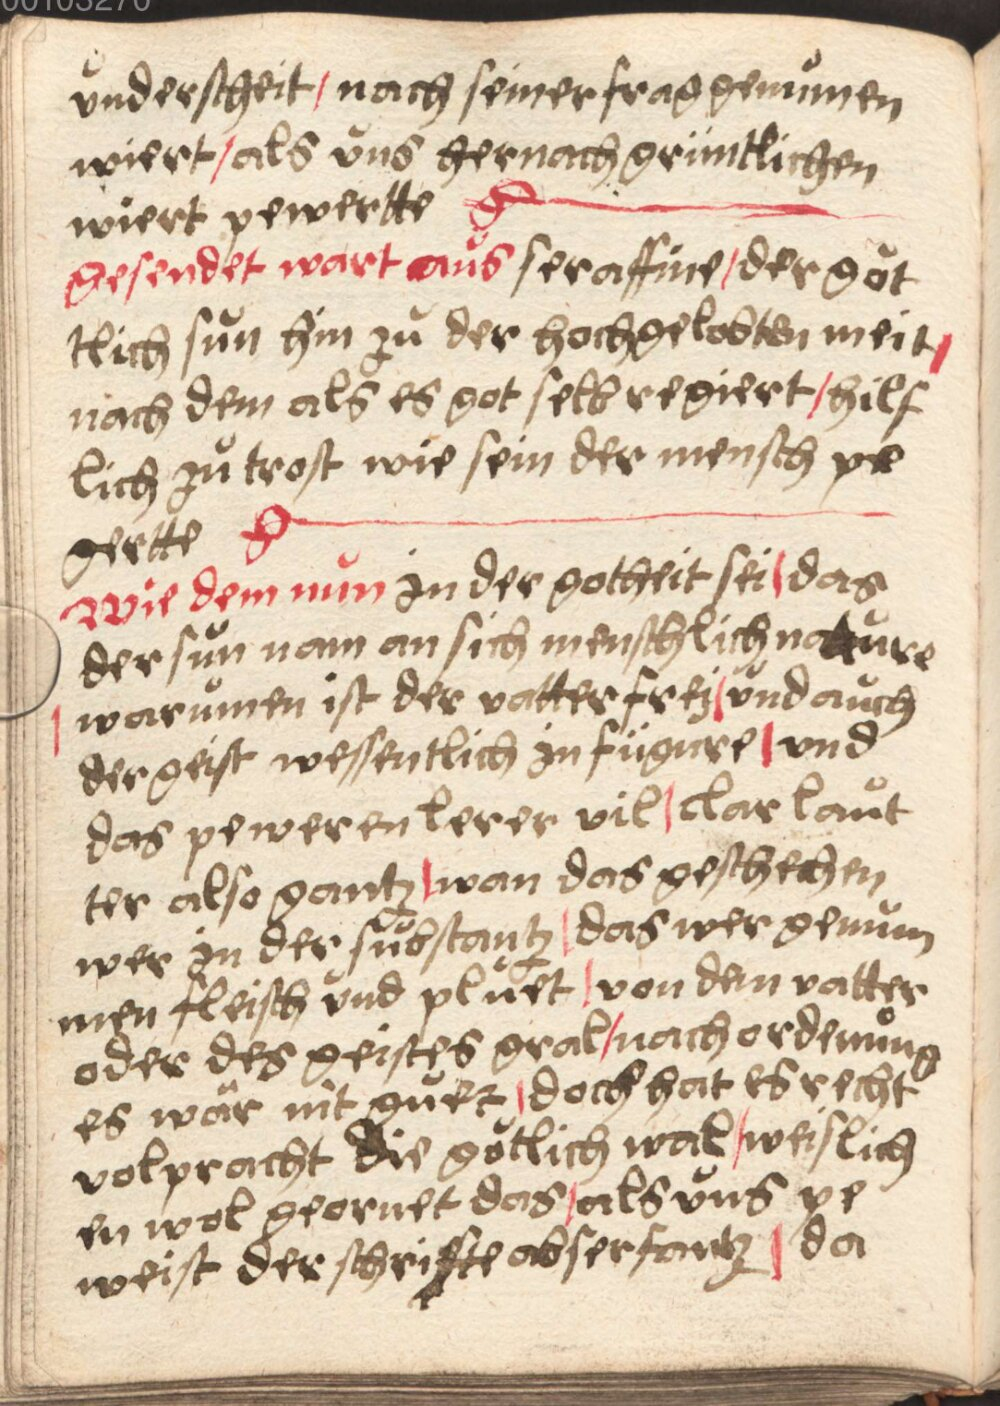 00103270
vnderscheit / nach seiner frag genumen
wiert / als vns hernach gruntlichen
wiert pewertte
Gesendet wart aus seraffine / der göt
tlich sun hin zu der hochgelobten meit /
nach dem als es got selb regiert / hilf
lich zu trost wie sein der mensch pe
gertte
Wie dem nun in der gotheit sei / das
der sun nam an sich menschlich nature
/ warumen ist der vatter frej / vnd auch
der geist wessentlich in fügure / vnd
das peweren lerer vil / clar laut
ter also gantz / wan das geschechen
wer in der substantz / das wer genum
men fleisch vnd pluet / von dem vatter
oder des geistes gral / nach ordenung
es wär nit guet / doch hat es recht
volpracht die götlich wal / weislich
en wol geornet das / als vns pe
weist der schrifte obserfantz / da